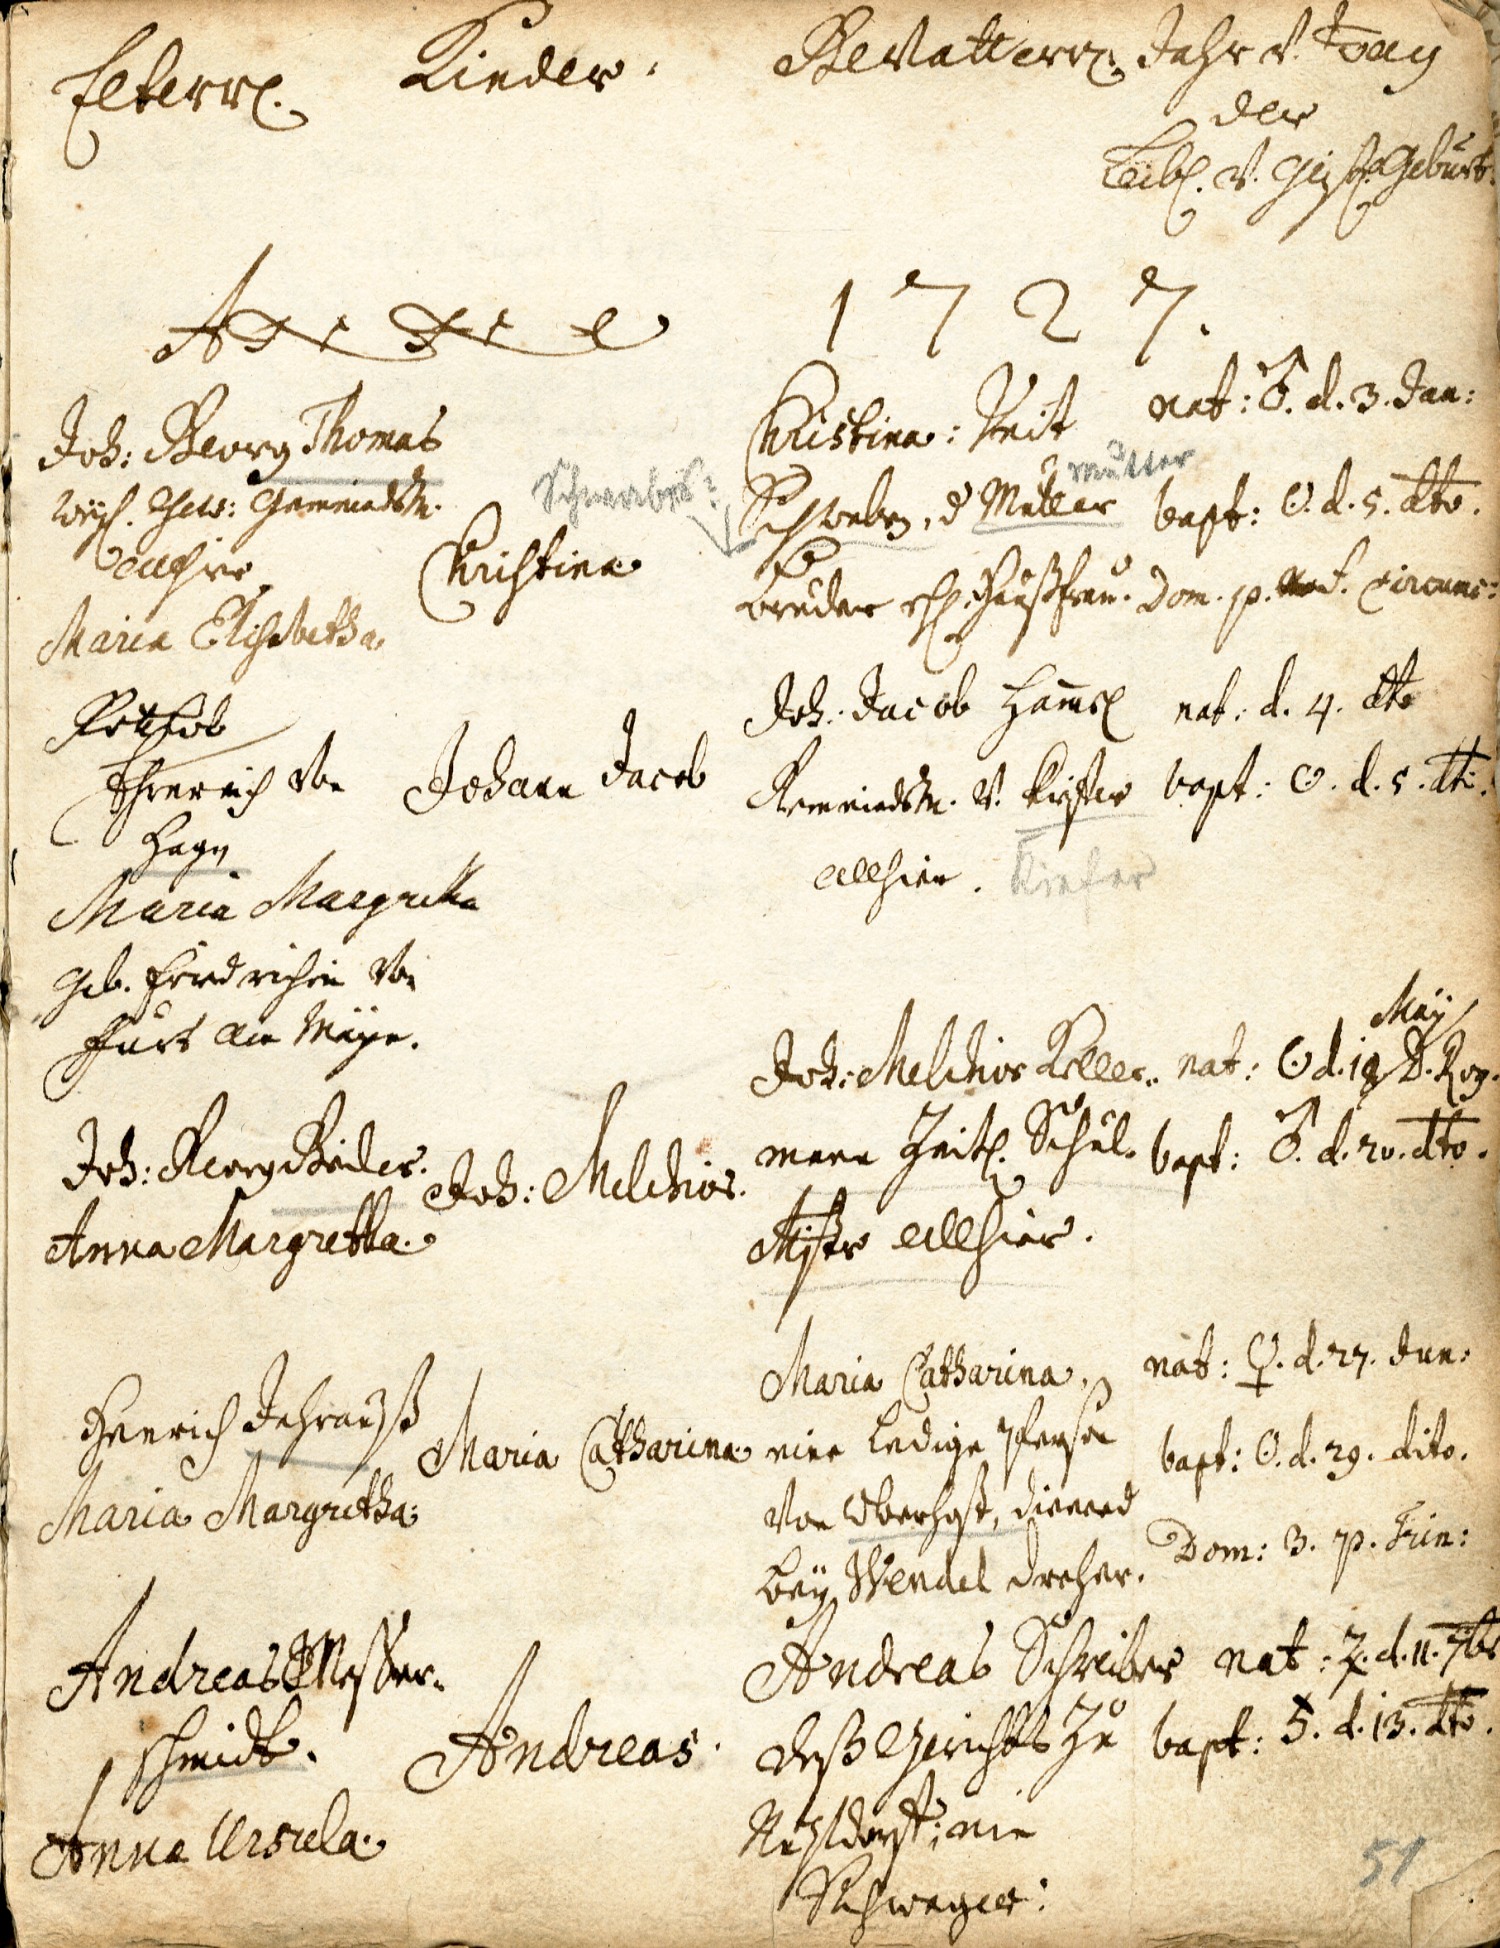 Eltern.
Kinder.
Gevattern. Jahr v. Tag
der
Leibl. v. Geistl. Geburt.
A
1 7 2 7.
Joh: Georg Thomas
Gew: Gemeindsm.
Maria Elisabetha.
Christina
Christina: Veit
Schwaben, d Müller
Mutter
Bruder ehl. Haußfrau.
nat: ♂. d. 3. Jan:
bapt: ☉. d. 5. dto.
Dom. p. f. Circumc:
Gottlob
Ehrenreich Von
Hagn
Maria Margretha
geb. Friedrichin Von
Furt am Mayn.
Johann Jacob
Joh: Jacob
Gemeindsm. v. Kiefer
allhier.
Kiefer
nat: d. 4. dto
bapt: ☉. d. 5. dto.
Joh: Georg Beiler.
Anna Margretha.
Joh: Melchior.
Joh: Melchior Keller-
mann Zeitl. Schul-
Mstr allhier.
May
nat: ☉ d. 18 D. Rog.
bapt: ♂. d. 20. dto.
Henrich Jehraus
Maria Margretha.
Maria Catharina.
Maria Catharina,
eine ledige Person
Von dienend
bey Wendel Dreher.
nat: ♀. d. 27. Jun:
bapt: ☉. d. 29. dito.
Dom: 3. p. Trin:
Andreas Messer-
schmidt.
Anna Ursula.
Andreas.
Andreas Schreiber
deß Gerichts Zu
ein
Schwager:
nat: ♃. d. 11. 7br
bapt: ♄. d. 13. dto.
51